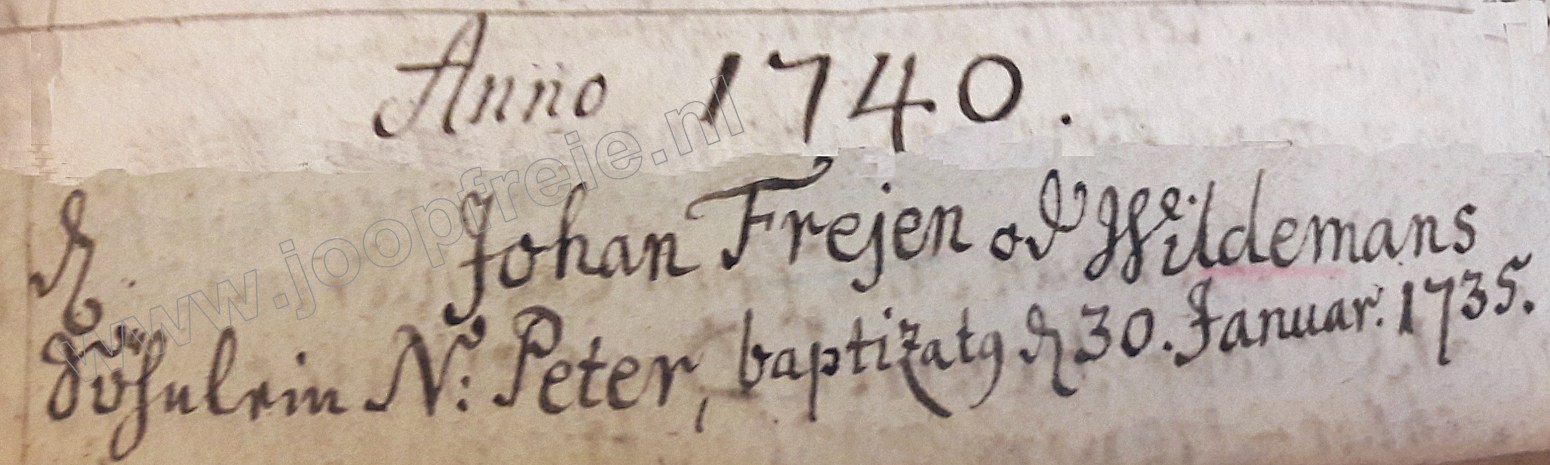 Anno 1740.
d. Johan Frejen od Wildemans
Söhnlein N: Peter, baptizatq d 30. Januar. 1735.
www.joopfreie.nl